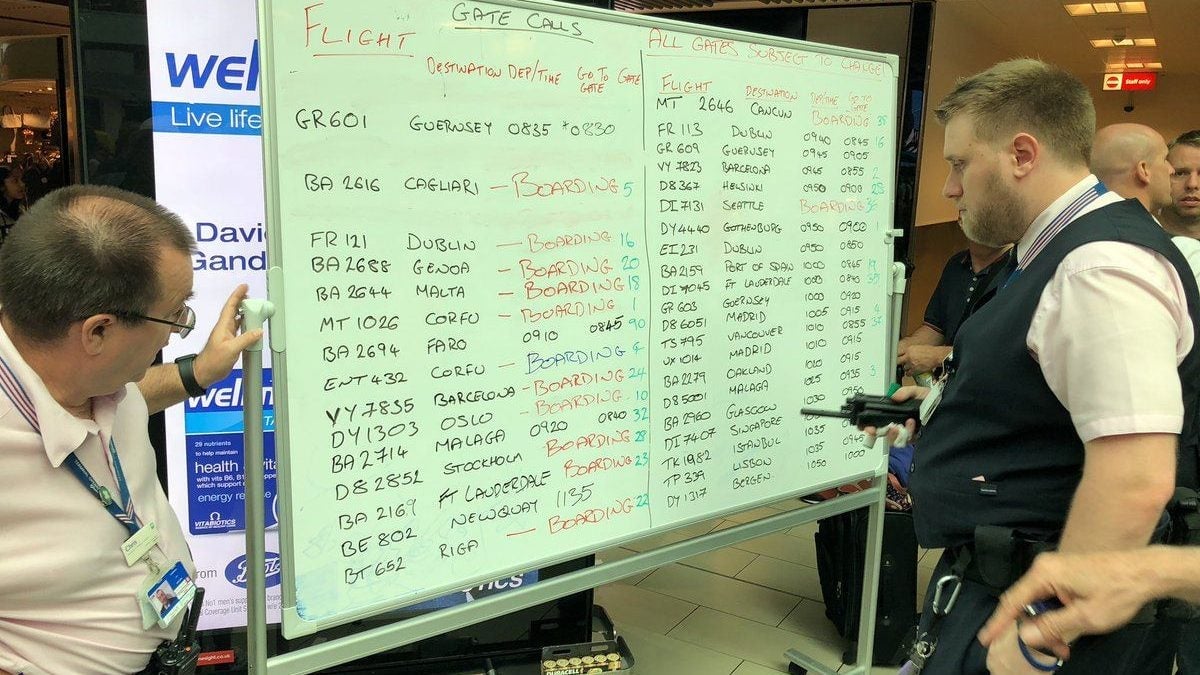 GATE CALLS
FLIGHT
DESTINATION DEP/TIME GO TO GATE GATE
GR601 GUERNSEY 0835 *0830
BA 2616 CAGLIARI - BOARDING 5
FR 121 DUBLIN - BOARDING 16
BA2688 GENOA - BOARDING 20
BA 2644 MALTA - BOARDING 18
MT 1026 CORFU - BOARDING 1
BA 2694 FARO 0910 0845 90
ENT 432 CORFU - BOARDING 4
VY 7835 BARCELONA - BOARDING 24
DY1303 OSLO - BOARDING 10
BA 2714 MALAGA 0920 0840 32
D8 2852 STOCKHOLM BOARDING 28
BA 2169 FT LAUDERDALE BOARDING 23
BE 802 NEWQUAY 1135
BT 652 RIGA - BOARDING 22
ALL GATES SUBJECT TO CHANGE!
FLIGHT DESTINATION DEP/TIME GO TO
MT 2646 CANCUN BOARDING
FR 113 DUBLIN 0940 0845 16
GR 609 GUERNSEY 0945 0905
VY 7823 BARCELONA 0945 0855 2
D8367 HELSINKI 0950 0900
DI7131 SEATTLE BOARDING
DY4440 GOTHENBURG 0950 0900 1
EI 231 DUBLIN 0950 0850
BA2159 PORT OF SPAIN 1000 0845 19
DI 7045 FT LAUDERDALE 1000 0845
GR 603 GUERNSEY 1000 0920
D8 6051 MADRID 1005 0915 4
TS 795 VANCOUVER 1010 0855 37
UX 1014 MADRID 1010 0915
BA2279 OAKLAND 0915
D85001 MALAGA 1025 0935 3
BA 2960 GLASGOW 0950
DI 7407 SINGAPORE 1035
TK1982 ISTANBUL 1035 0945
TP 339 LISBON 1050 1000
DY1317 BERGEN
Live life
Davi
Gand
29 nutrients
to help maintain
health & vita
with vits B6, B1
which support
energy rele
VITABIOTICS
from Boots
Staff only
DURACELL